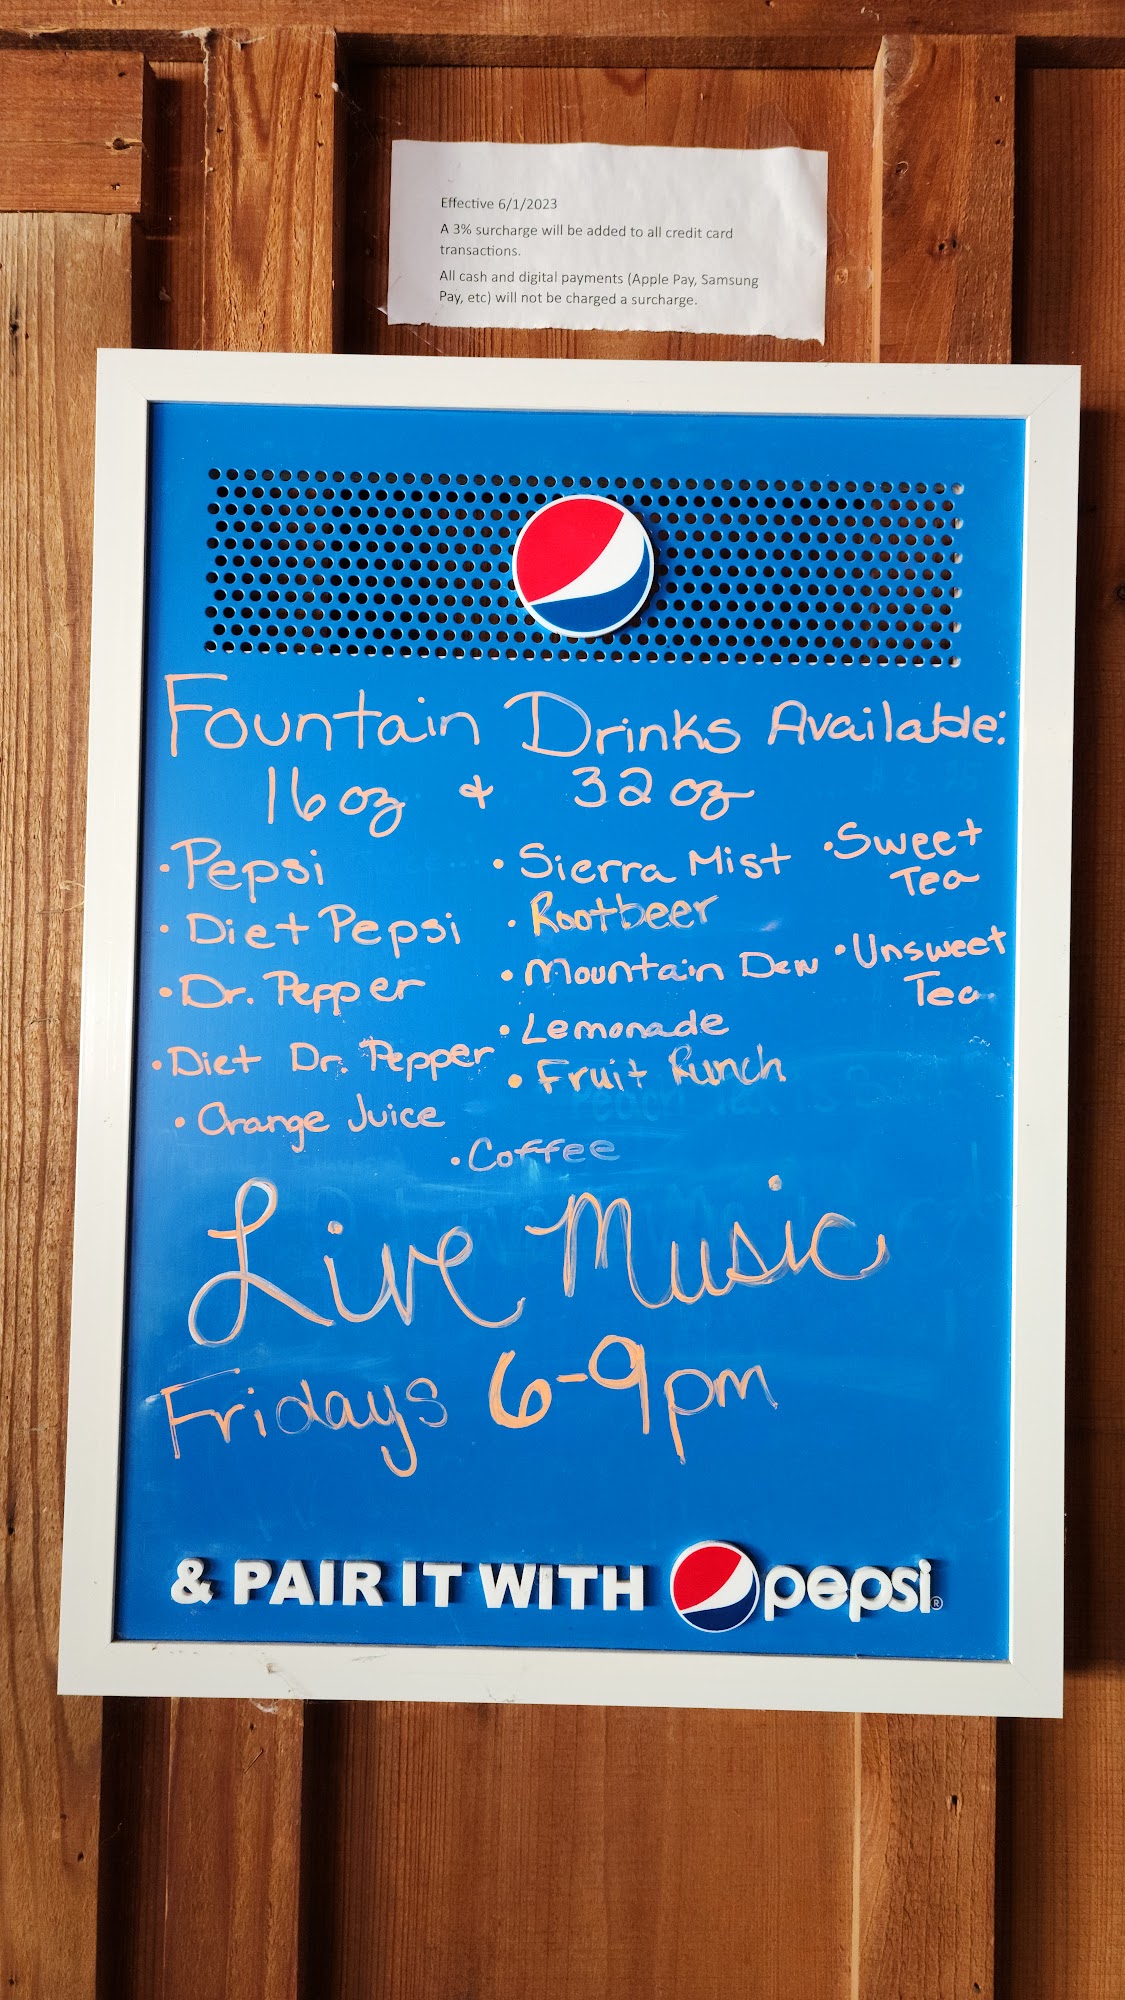 Effective 6/1/2023
A 3% surcharge will be added to all credit card
transactions.
All cash and digital payments (Apple Pay, Samsung
Pay, etc) will not be charged a surcharge.
Fountain Drinks Available:
16 oz & 32 oz
• Pepsi
• Diet Pepsi
• Dr. Pepper
• Diet Dr. Pepper
• Orange Juice
• Sierra Mist
• Rootbeer
• Mountain Dew
• Lemonade
• Fruit Punch
• Coffee
• Sweet
Tea
• Unsweet
Tea
Live Music
Fridays 6-9pm
& PAIR IT WITH pepsi®